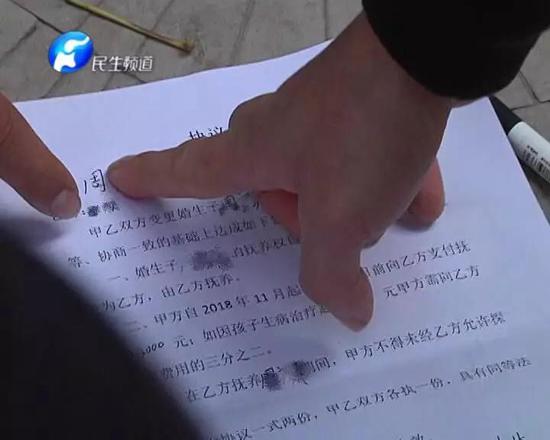 民生频道
协议
周
甲乙双方变更婚生子
等、协商一致的基础上达成如下
一、婚生子 自抚养权
为乙方，由乙方抚养。
二、甲方自2018年11月起 前向乙方支付抚
000元；如因孩子生病治疗 元甲方需向乙方
费用的三分之二。
在乙方抚养 期间，甲方不得未经乙方允许探
协议一式两份，甲乙双方各执一份，具有同等法